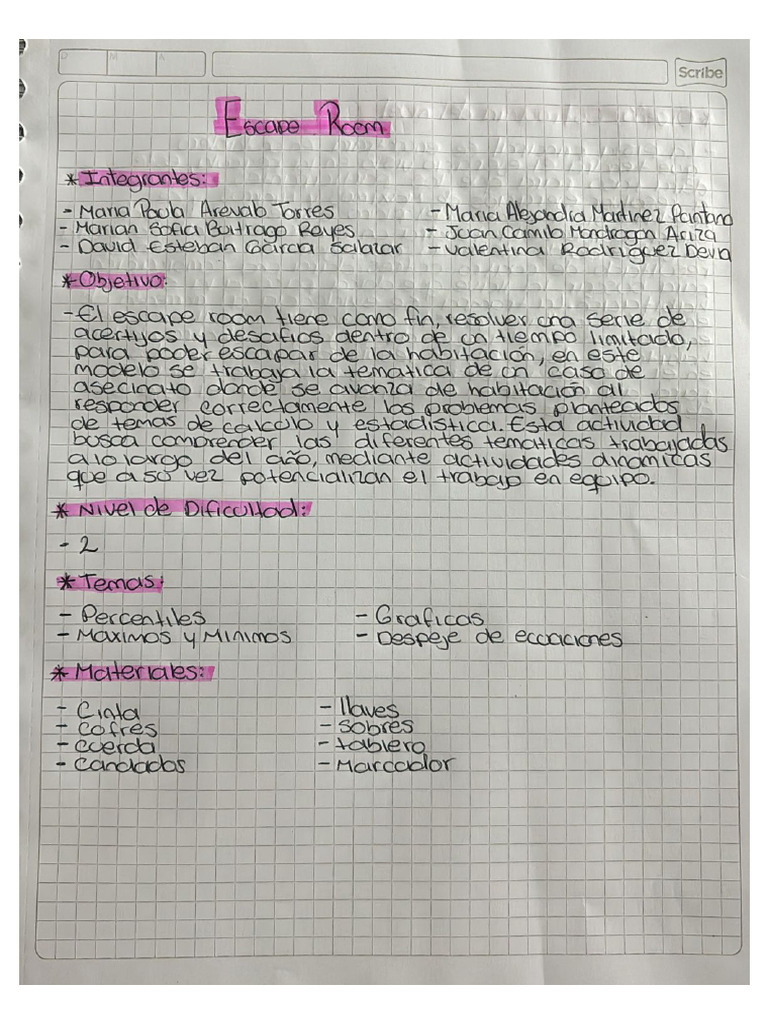 D M A
Scribe
Escape Room
* Integrantes:
- Maria Paula Arevalo Torres
- Maria Alejandra Martinez Pantano
- Marian Sofia Buitrago Reyes
- Juan Camilo Mondragon Ariza
- David Esteban Garcia Salazar
- Valentina Rodriguez Devia
* Objetivo:
- El escape room tiene como fin, resolver una serie de
acertijos y desafios dentro de un tiempo limitado,
para poder escapar de la habitación, en este
modelo se trabaja la tematica de un caso de
asecinato donde se avanza de habitación al
responder correctamente los problemas planteados
de temas de calculo y estadistica. Esta actividad
busca comprender las diferentes tematicas trabajadas
a lo largo del año, mediante actividades dinamicas
que a su vez potencializan el trabajo en equipo.
* Nivel de Dificultad:
- 2
* Temas:
- Percentiles
- Graficas
- Maximos y Minimos
- Despeje de ecuaciones
* Materiales:
- Cinta
- llaves
- Cofres
- sobres
- cuerda
- tablero
- Candados
- Marcador